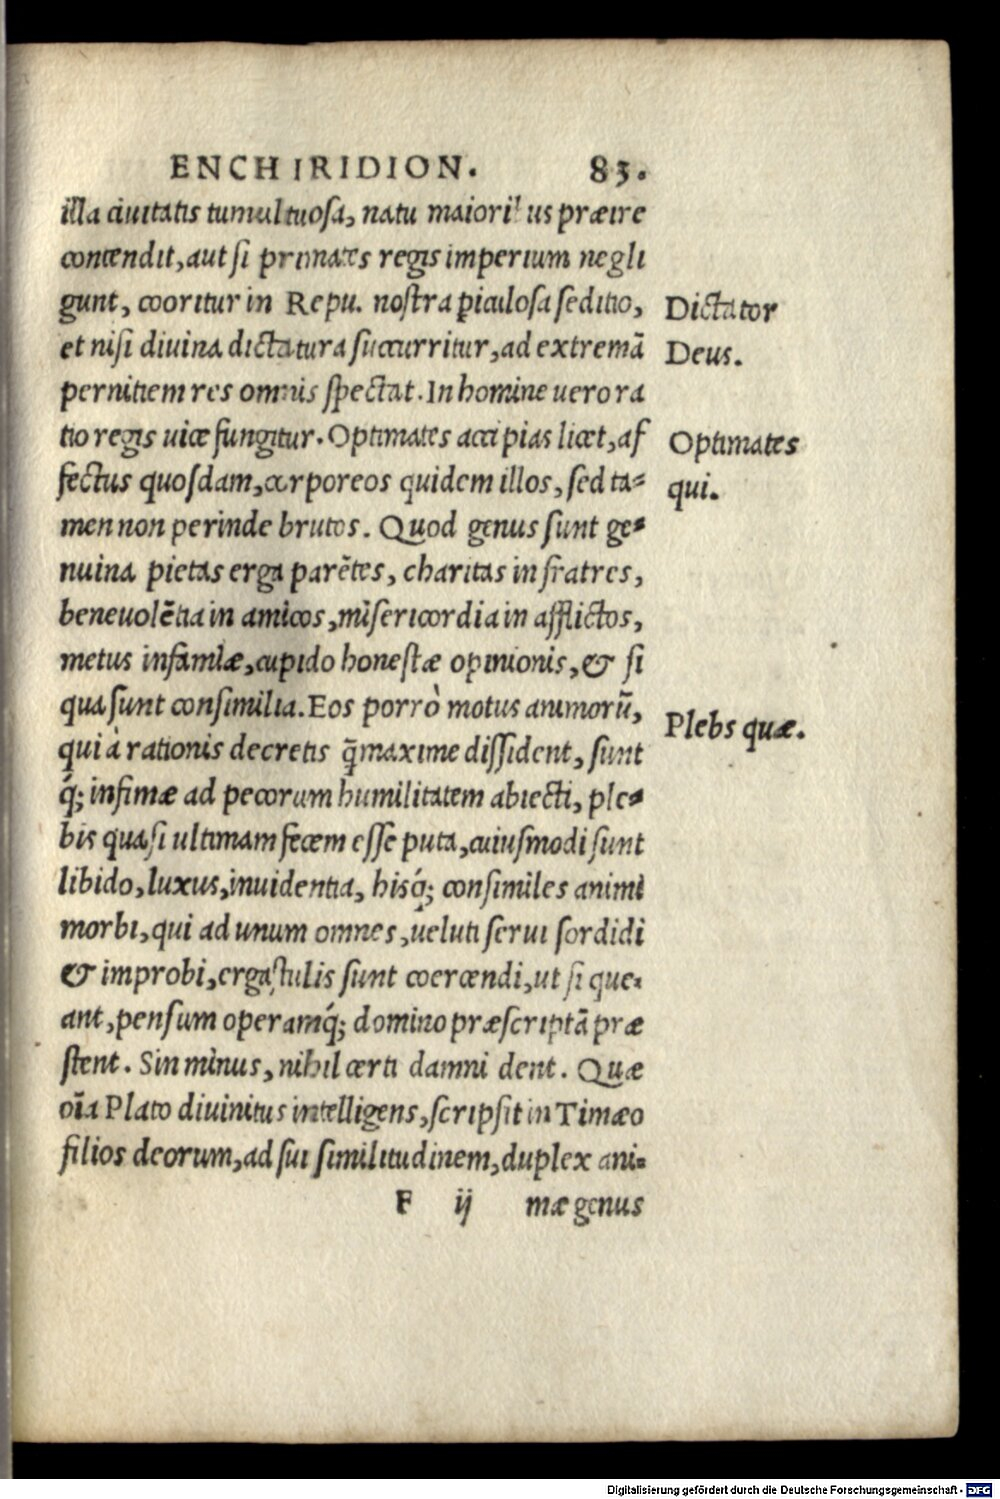 ENCHIRIDION. 83.
illa ciuitatis tumultuosa, natu maioribus præire
contendit, aut si primates regis imperium negli
gunt, cooritur in Repu. nostra piculosa seditio,
Dictator
et nisi diuina dictatura succurritur, ad extremā
Deus.
pernitiem res omnis spectat. In homine uero ra
tio regis uice fungitur. Optimates accipias licet, af
Optimates
fectus quosdam, corporeos quidem illos, sed ta-
qui.
men non perinde brutos. Quod genus sunt ge-
nuina pietas erga parētes, charitas in fratres,
beneuolētia in amicos, misericordia in afflictos,
metus infamiæ, cupido honestæ opinionis, & si
qua sunt consimilia. Eos porrò motus animorū,
Plebs quæ.
qui à rationis decretis q̄maxime dissident, sunt
q́; infimæ ad pecorum humilitatem abiecti, ple-
bis quasi ultimam fecem esse puta, cuiusmodi sunt
libido, luxus, inuidentia, hisq́; consimiles animi
morbi, qui ad unum omnes, ueluti serui sordidi
& improbi, ergastulis sunt coercendi, ut si que-
ant, pensum operamq́; domino præscriptā præ
stent. Sin minus, nihil certi damni dent. Quæ
oīa Plato diuinitus intelligens, scripsit in Timæo
filios deorum, ad sui similitudinem, duplex ani-
F ij mæ genus
Digitalisierung gefördert durch die Deutsche Forschungsgemeinschaft - DFG